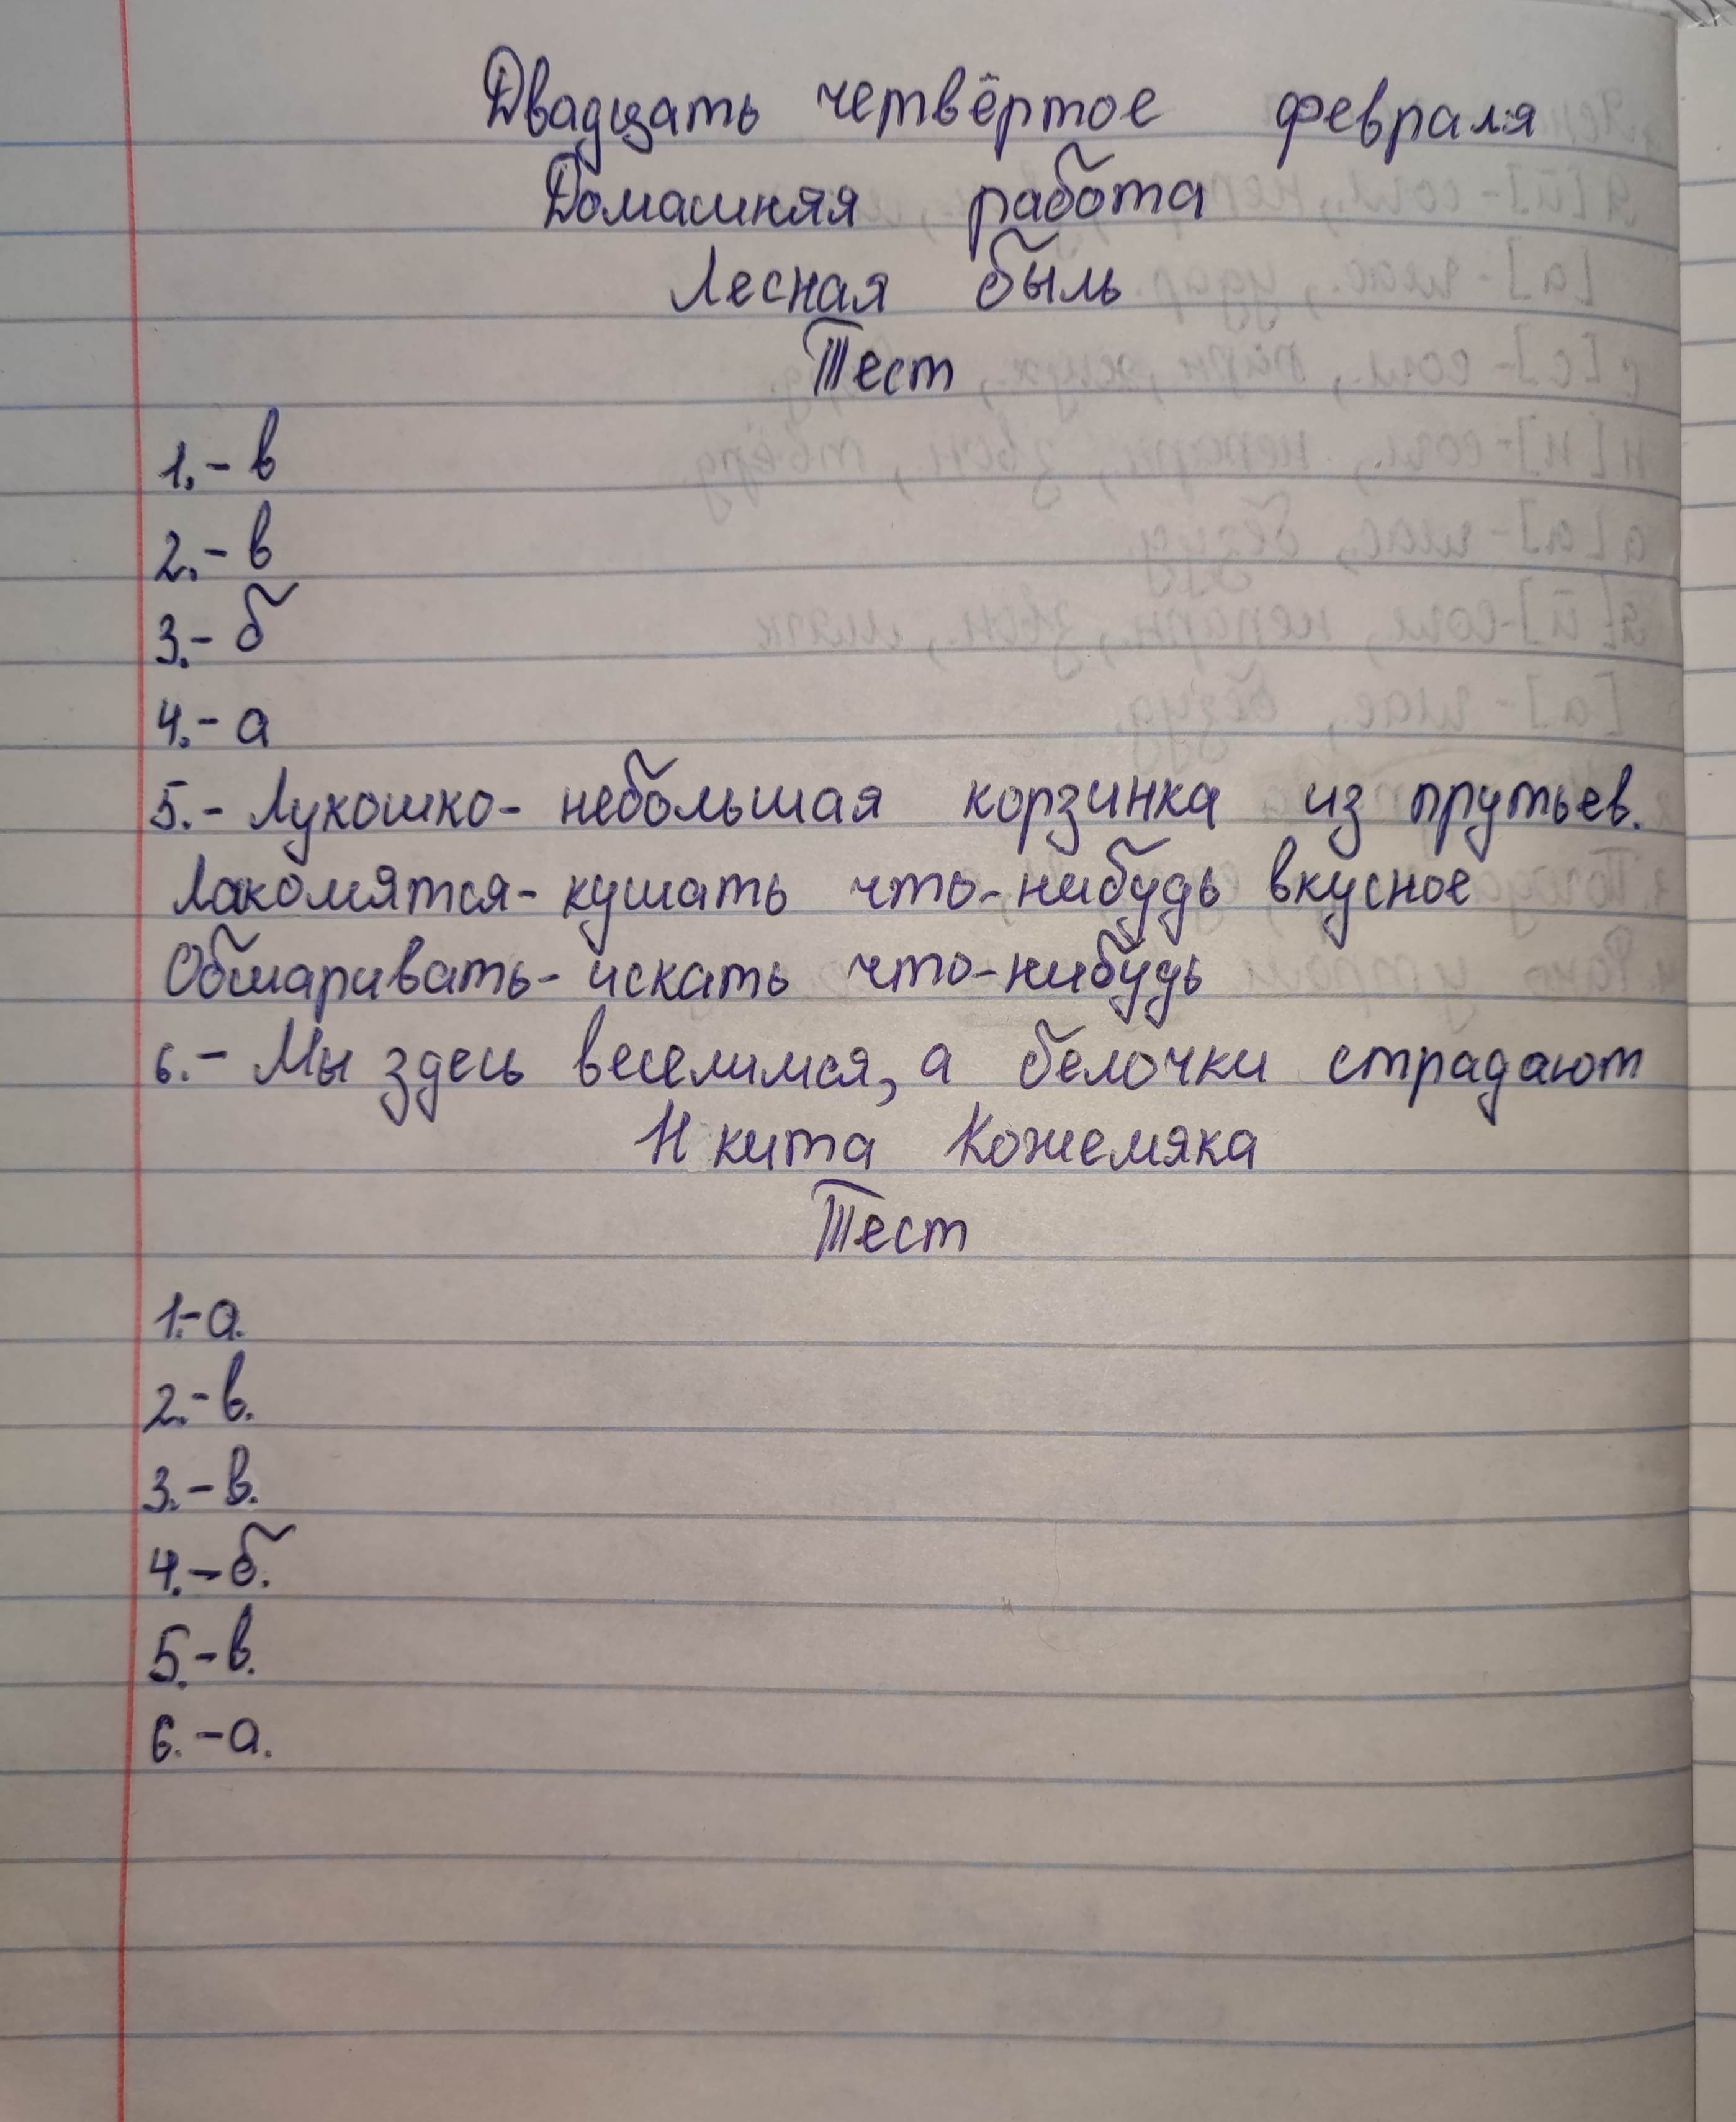 Двадцать четвёртое февраля
Домашняя работа
Лесная быль
Тест
1.- в
2.- в
3.- б
4.- а
5.- Лукошко- небольшая корзинка из прутьев.
Лакомятся- кушать что-нибудь вкусное
Обшаривать- искать что-нибудь
6.- Мы здесь веселимся, а белочки страдают
Н кита Кожемяка
Тест
1.-а.
2.-в.
3.-в.
4.-б.
5.-в.
6.-а.